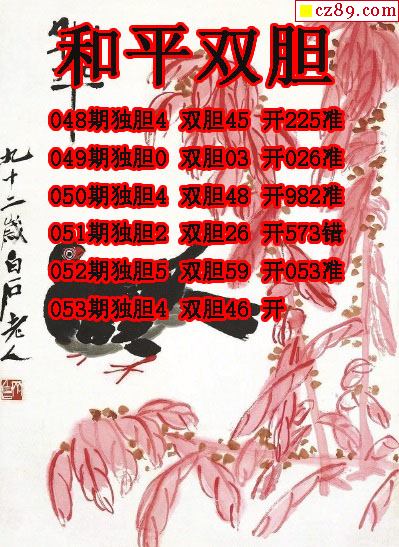 cz89.com
和平双胆
048期独胆4 双胆45 开225准
049期独胆0 双胆03 开026准
050期独胆4 双胆48 开982准
051期独胆2 双胆26 开573错
052期独胆5 双胆59 开053准
053期独胆4 双胆46 开
九十二岁白石老人